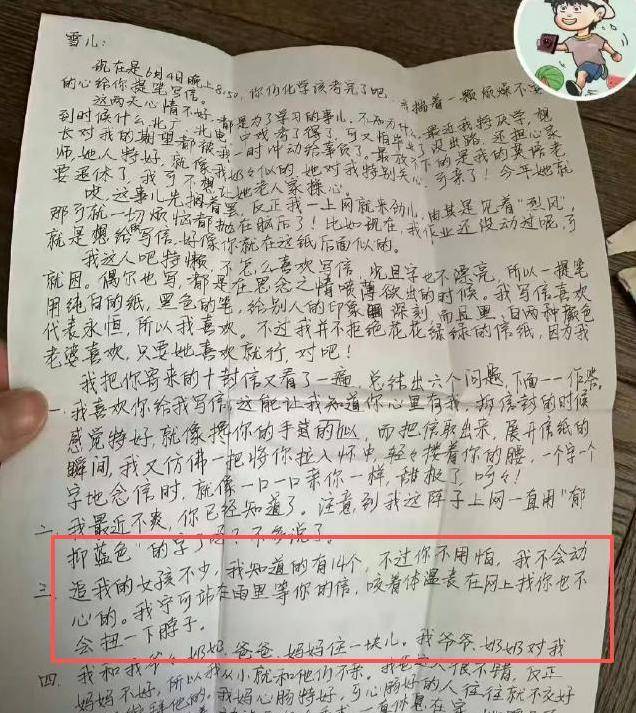 雪儿：
现在是6月4日晚上8:50，你们化学该考完了吧，
的心给你提笔写信。
这两天心情不好，都是为了学习的事儿，不知为什么，最近我特厌学，想
到时候什么北广、北电、中戏考了得了，可又怕毕业了没出路，还担心家
长对我的期望都被我一时冲动给辜负了。最放不下的是我的英语老
师，她人特好，就像我奶奶似的，她对我特别关心，可亲了！今年她就
要退休了，我可不想让她老人家操心。
哎，这事儿先搁着罢，反正我一上网就来劲儿，由其是见着“烈风”
那可就一切烦恼都抛在脑后了！比如现在，我作业还没动过呢，可
就是想给你写信，好像你就在这纸后面似的。
我这人吧特懒，不怎么喜欢写信，况且字也不漂亮，所以一提笔
就困。偶尔也写，都是在思念之情喷薄欲出的时候。我写信喜欢
用纯白的纸，黑色的笔，给别人的印象深刻，而且黑、白两种颜色
代表永恒，所以我喜欢。不过我并不拒绝花花绿绿的信纸，因为我
老婆喜欢，只要她喜欢就行，对吧！
我把你寄来的十封信又看了一遍，总结出六个问题，下面一一作答。
一、我喜欢你给我写信，这能让我知道你心里有我，拆信封的时候
感觉特好，就像搀你的手似的，而把信取出来，展开信纸的
瞬间，我又仿佛一把将你拉入怀中，轻轻搂着你的腰，一个字一个
字地念信时，就像一口一口亲你一样，甜极了
二、我最近不爽，你已经知道了。注意到我这阵子上网一直用“郁
抑蓝色”的字了吗？不多说了。
三、追我的女孩不少，我知道的有14个，不过你不用怕，我不会动
心的。我宁可站在雨里等你的信，咬着体温表在网上找你也不
会扭一下脖子。
四、我和我爷爷、奶奶、爸爸、妈妈住一块儿。我爷爷、奶奶对我
妈妈不好，所以我从小就和他们不亲。我爸这人很不错，反正
我妈心肠特好，可心肠好的人往往就不交好